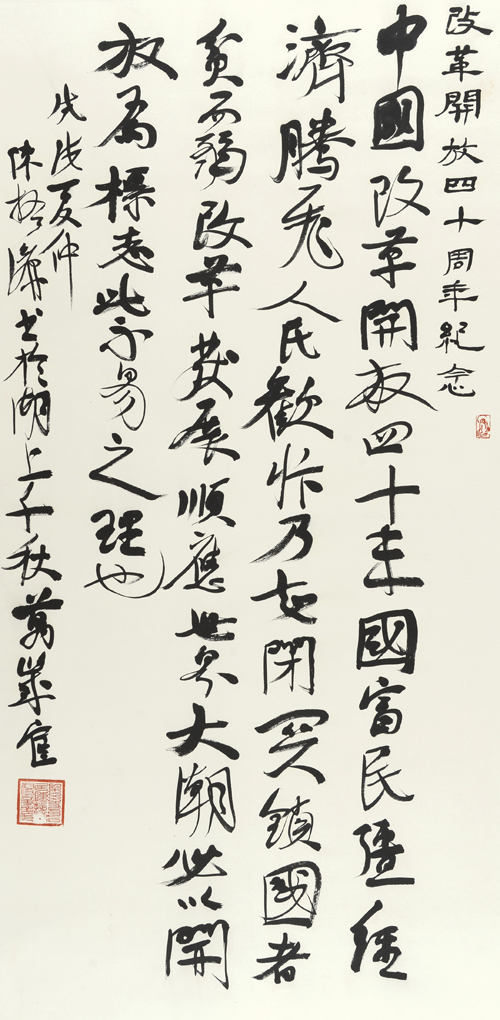 改革開放四十周年紀念
中國改革開放四十年國富民彊經
濟騰飛人民歡忭乃知閉關鎖國者
貧而弱改革發展順應世界大潮必以開
放為標志此不易之理也
戊戌夏仲
陳振濂書於湖上千秋萬歲宧